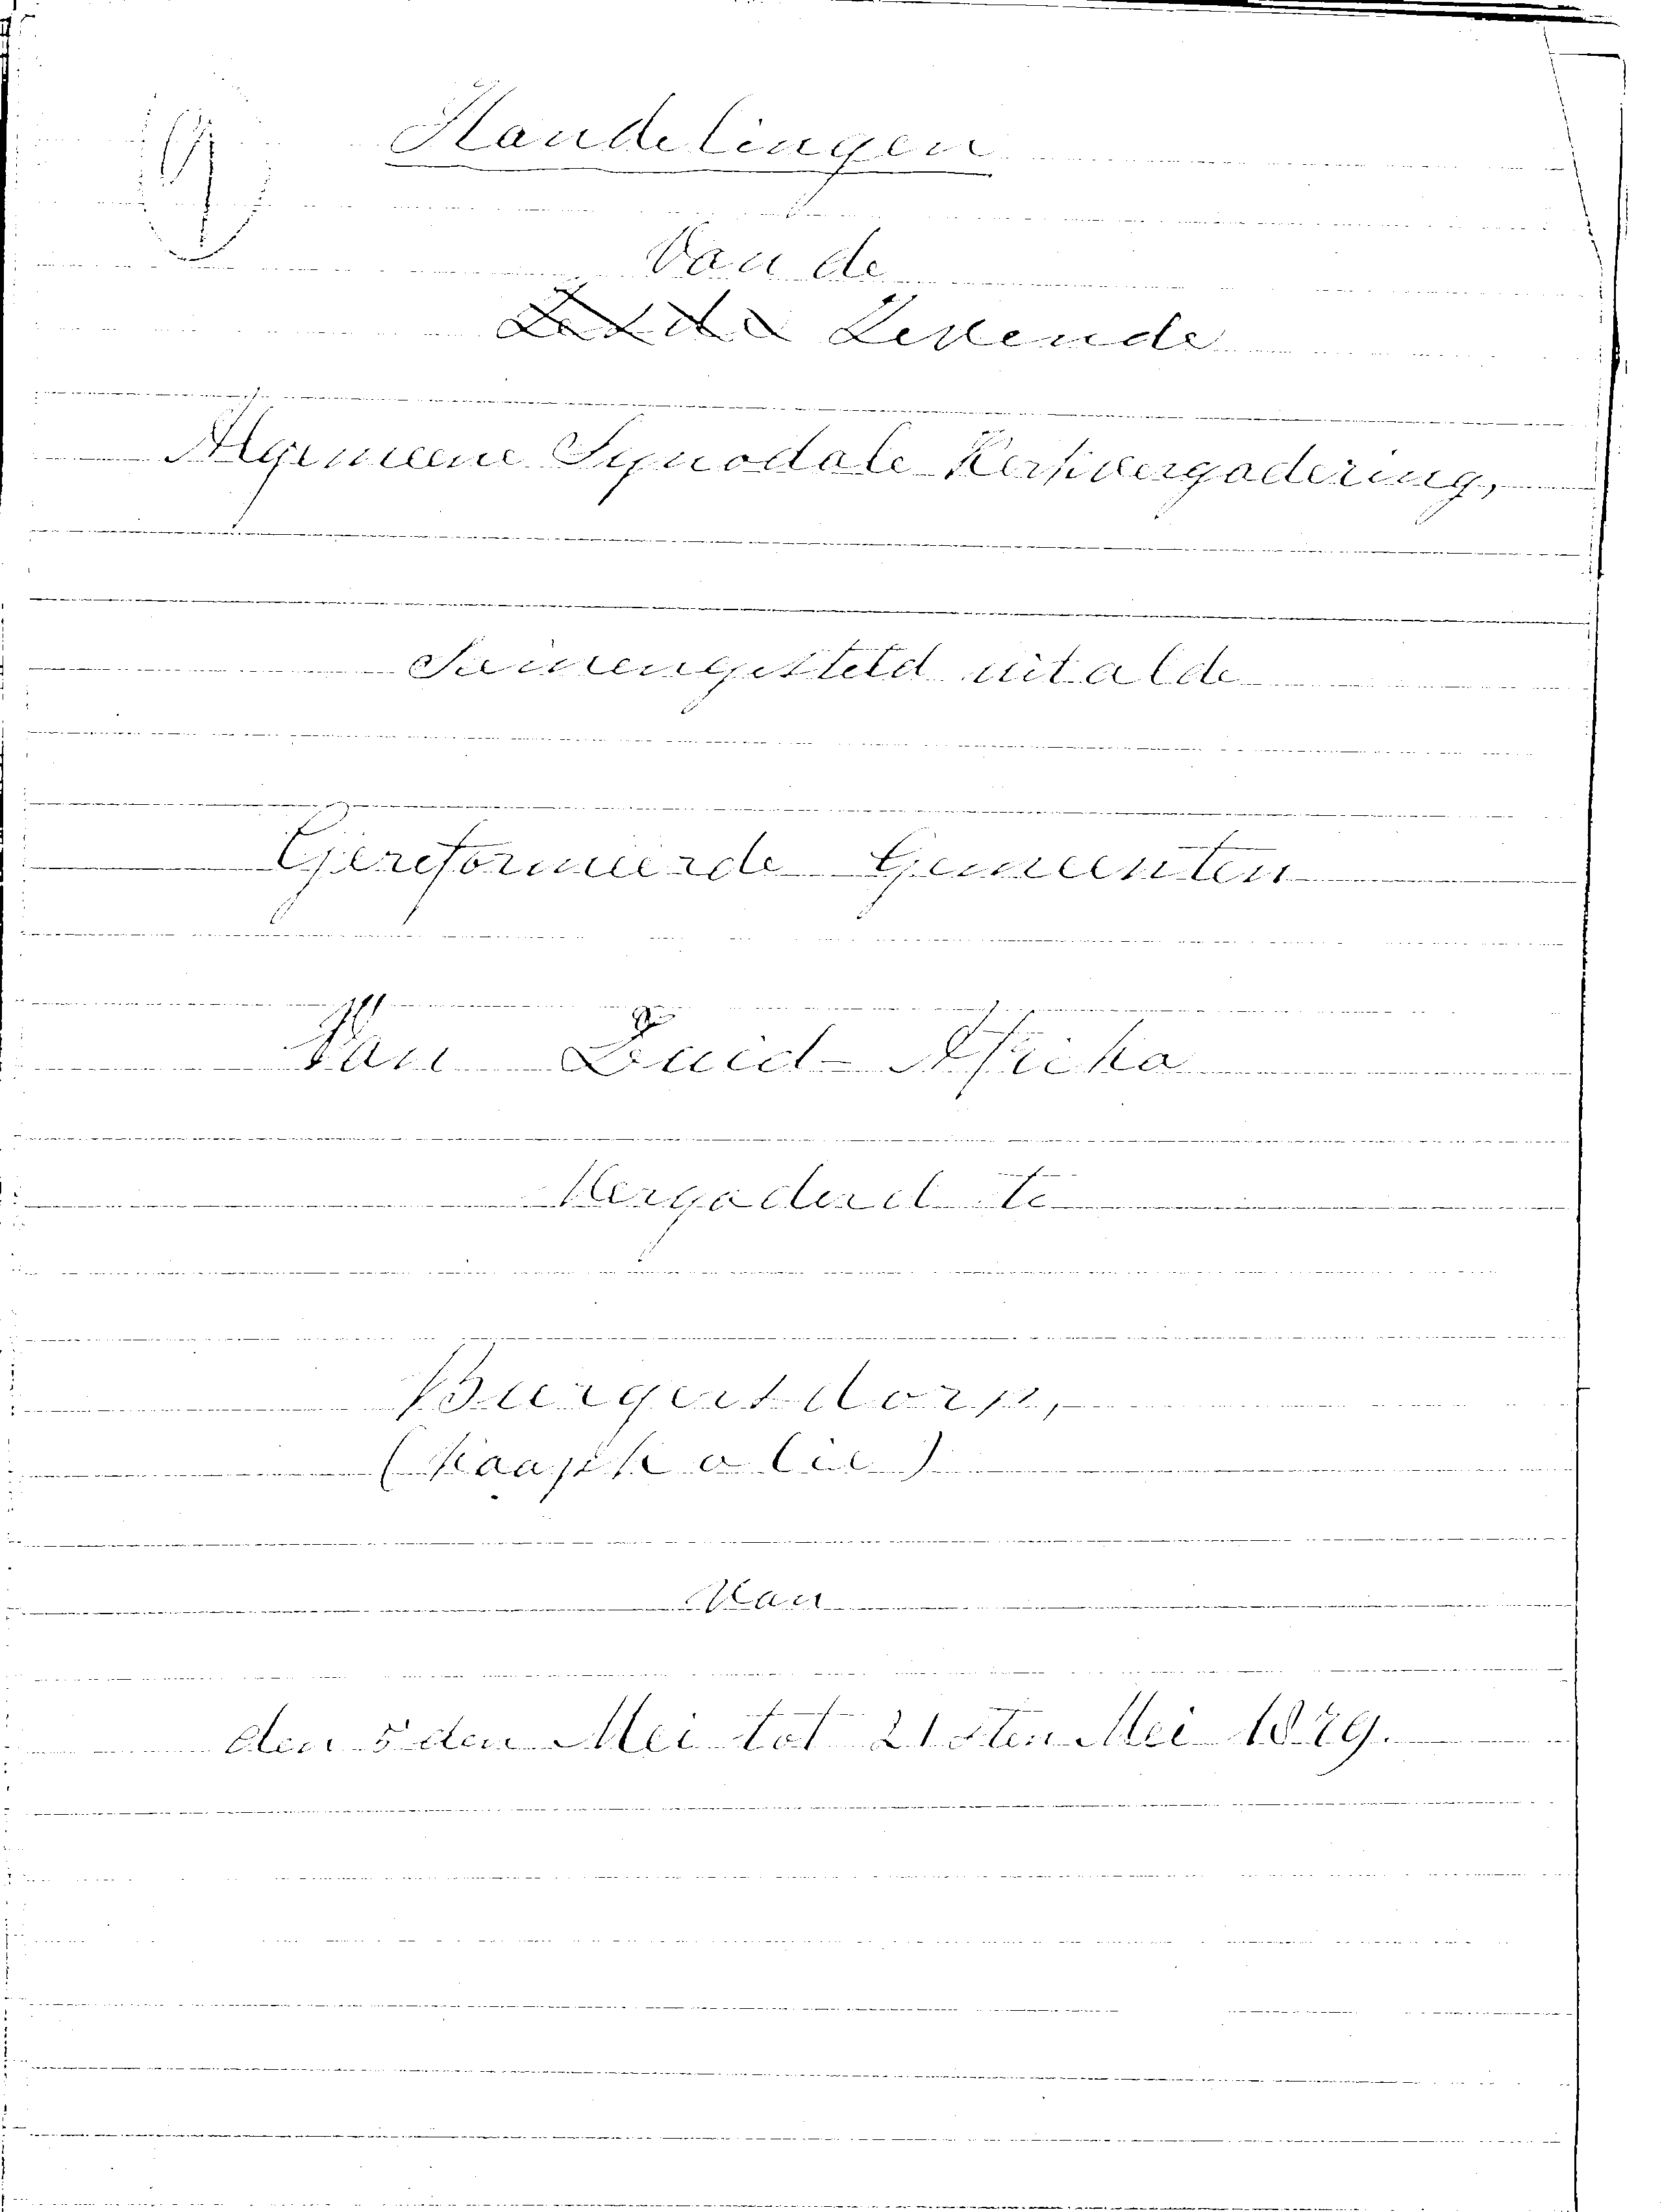 9
Handelingen
Van de
Zesde Zevende
Algemeene Synodale Kerkvergadering,
Samengesteld uit al de
Gereformeerde Gemeenten
Van Zuid-Afrika
Vergaderd te
Burgersdorp,
(Kaapkolie)
Van
den 5den Mei tot 21sten Mei 1879.